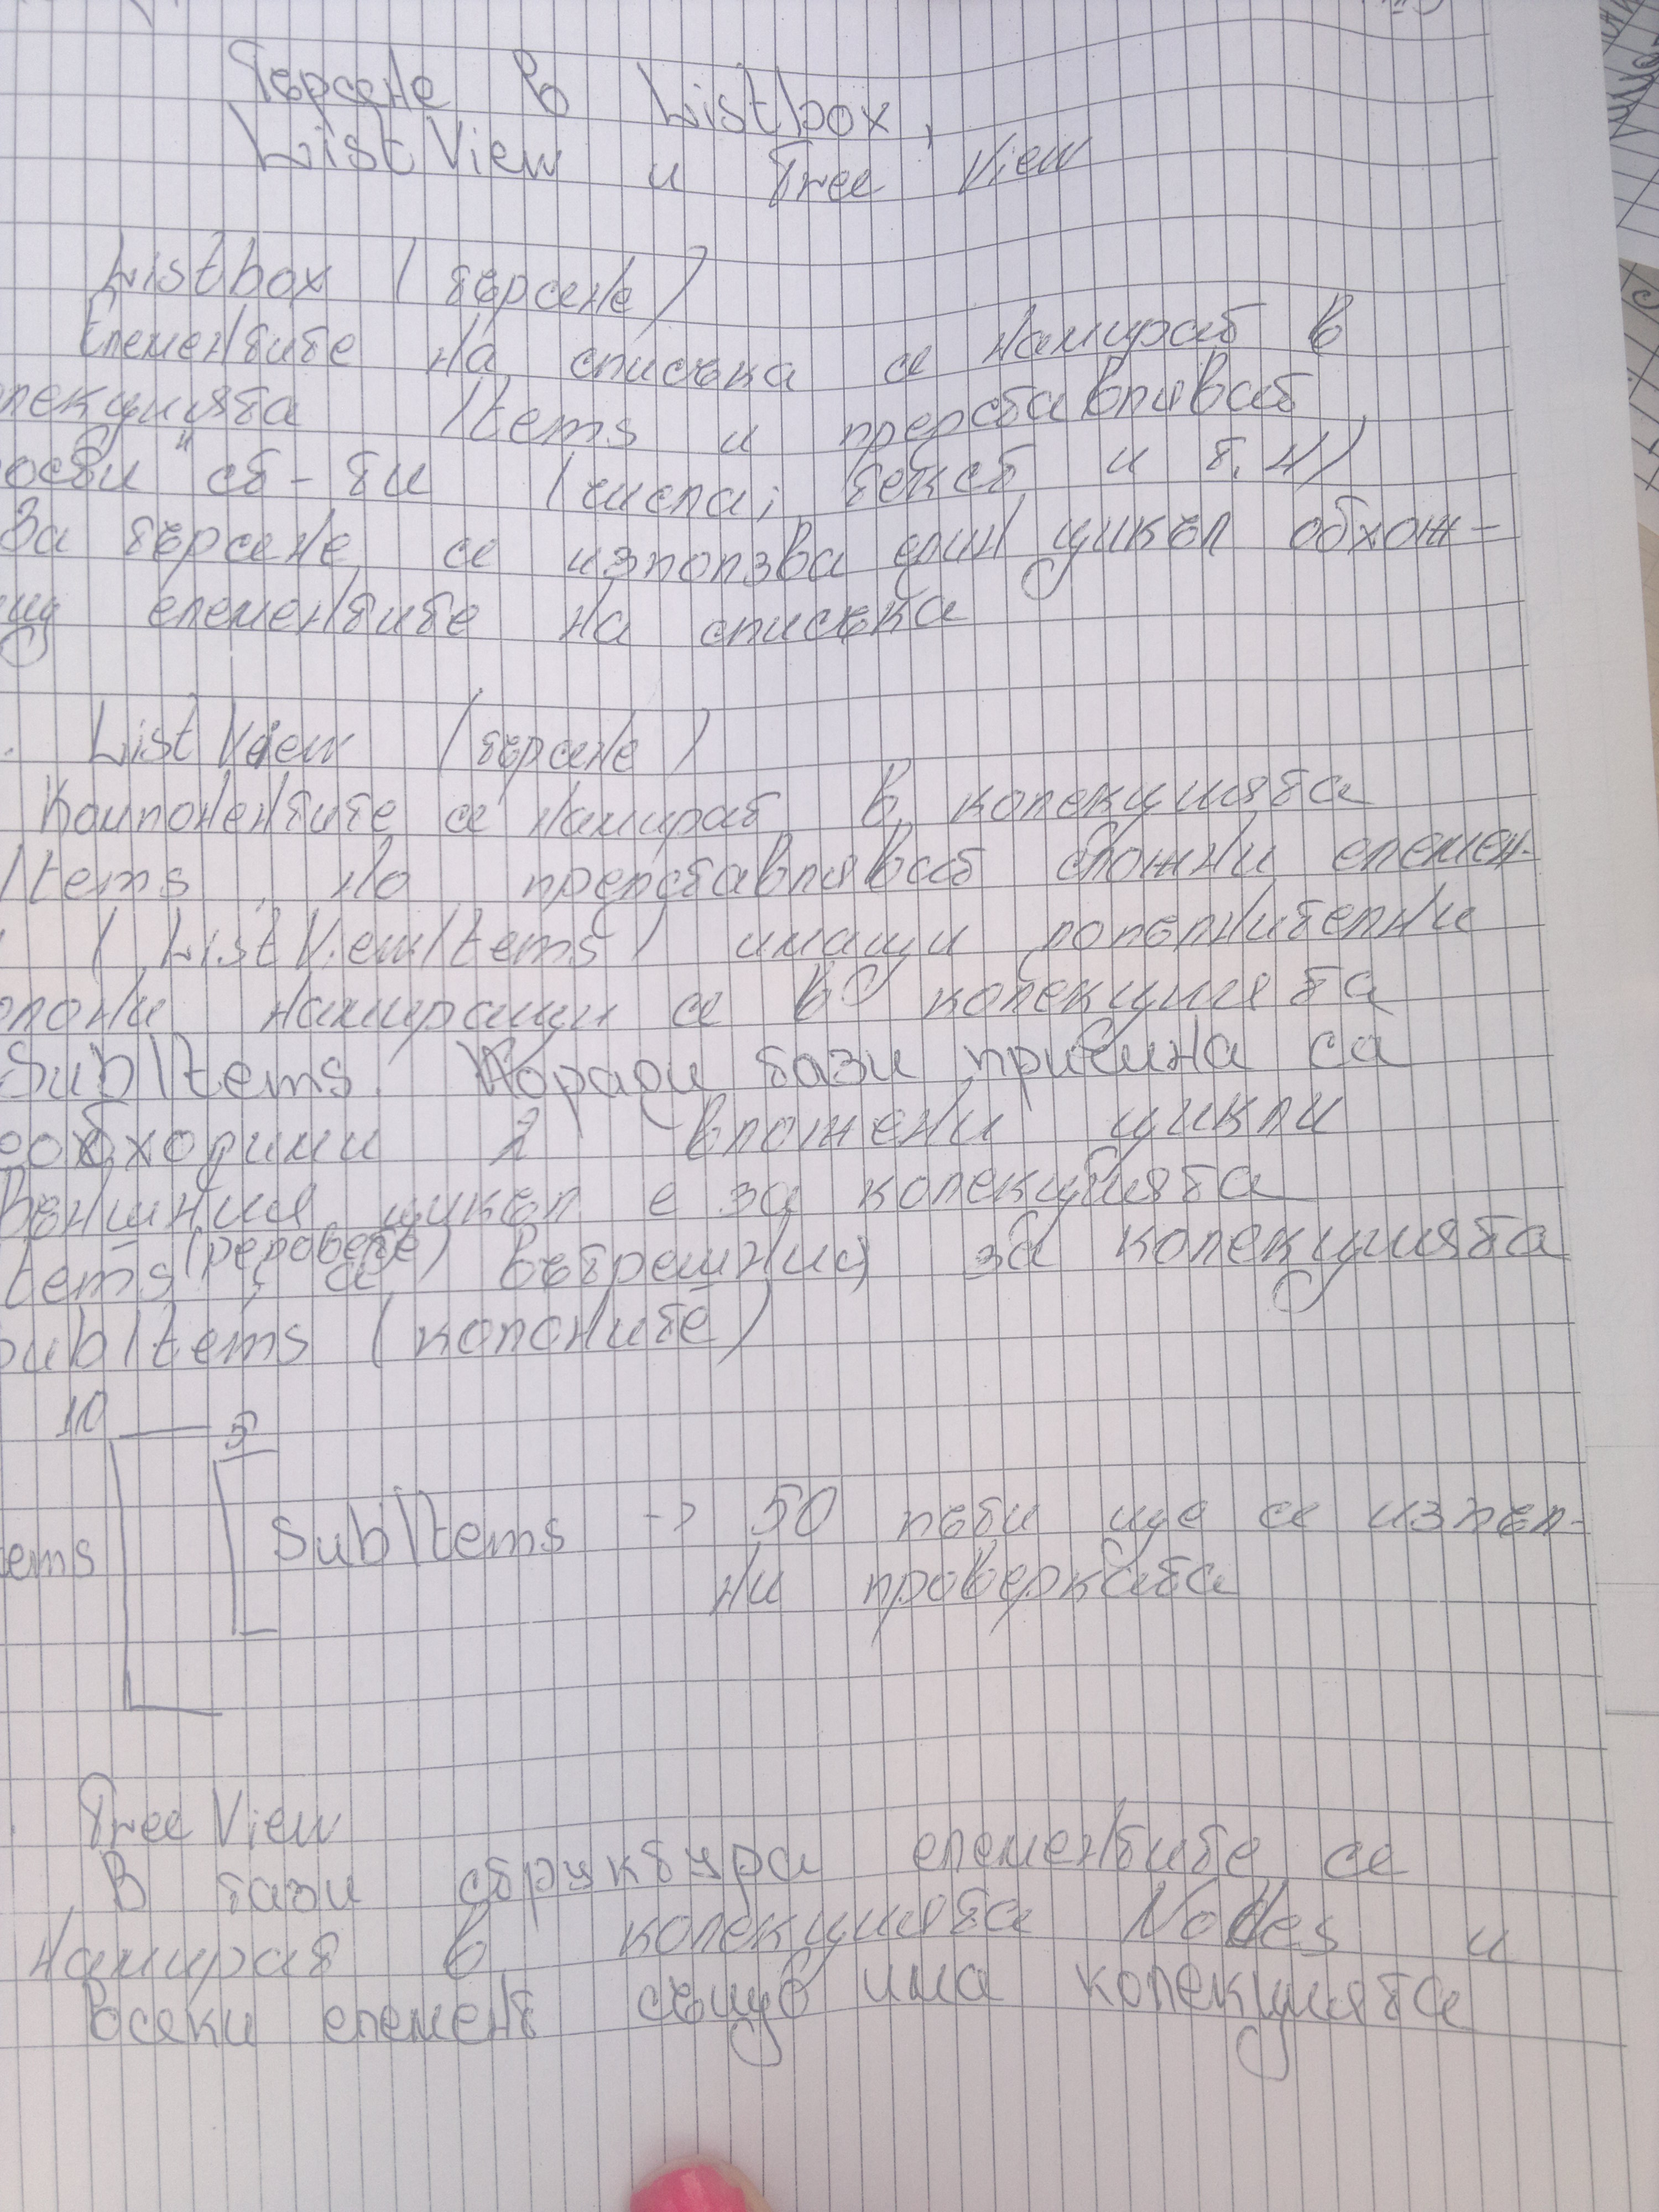 Търсене в Listbox,
ListView и Tree View
Listbox (търсене)
Елементите на списъка се намират в
олекцията Items и представляват
рости" ст-ти (числа, текст и т.н)
За търсене се използва един цикъл обхож-
ищ елементите на списъка
ListView (търсене)
Компонентите се намират в колекцията
Items, но представляват сложни елемен-
и (ListViewItems) имащи допълнителни
олони намиращи се в колекцията
SubItems. Поради тази причина са
еобходими 2 вложени цикли
Външния цикъл е за колекцията
tems (редовете), а вътрешния за колекцията
SubItems (колоните)
10 5
ems SubItems -> 50 пъти ще се изпъл-
ни проверката
Tree View
В тази структура елементите се
намират в колекцията Nodes и
всеки елемент също има колекцията